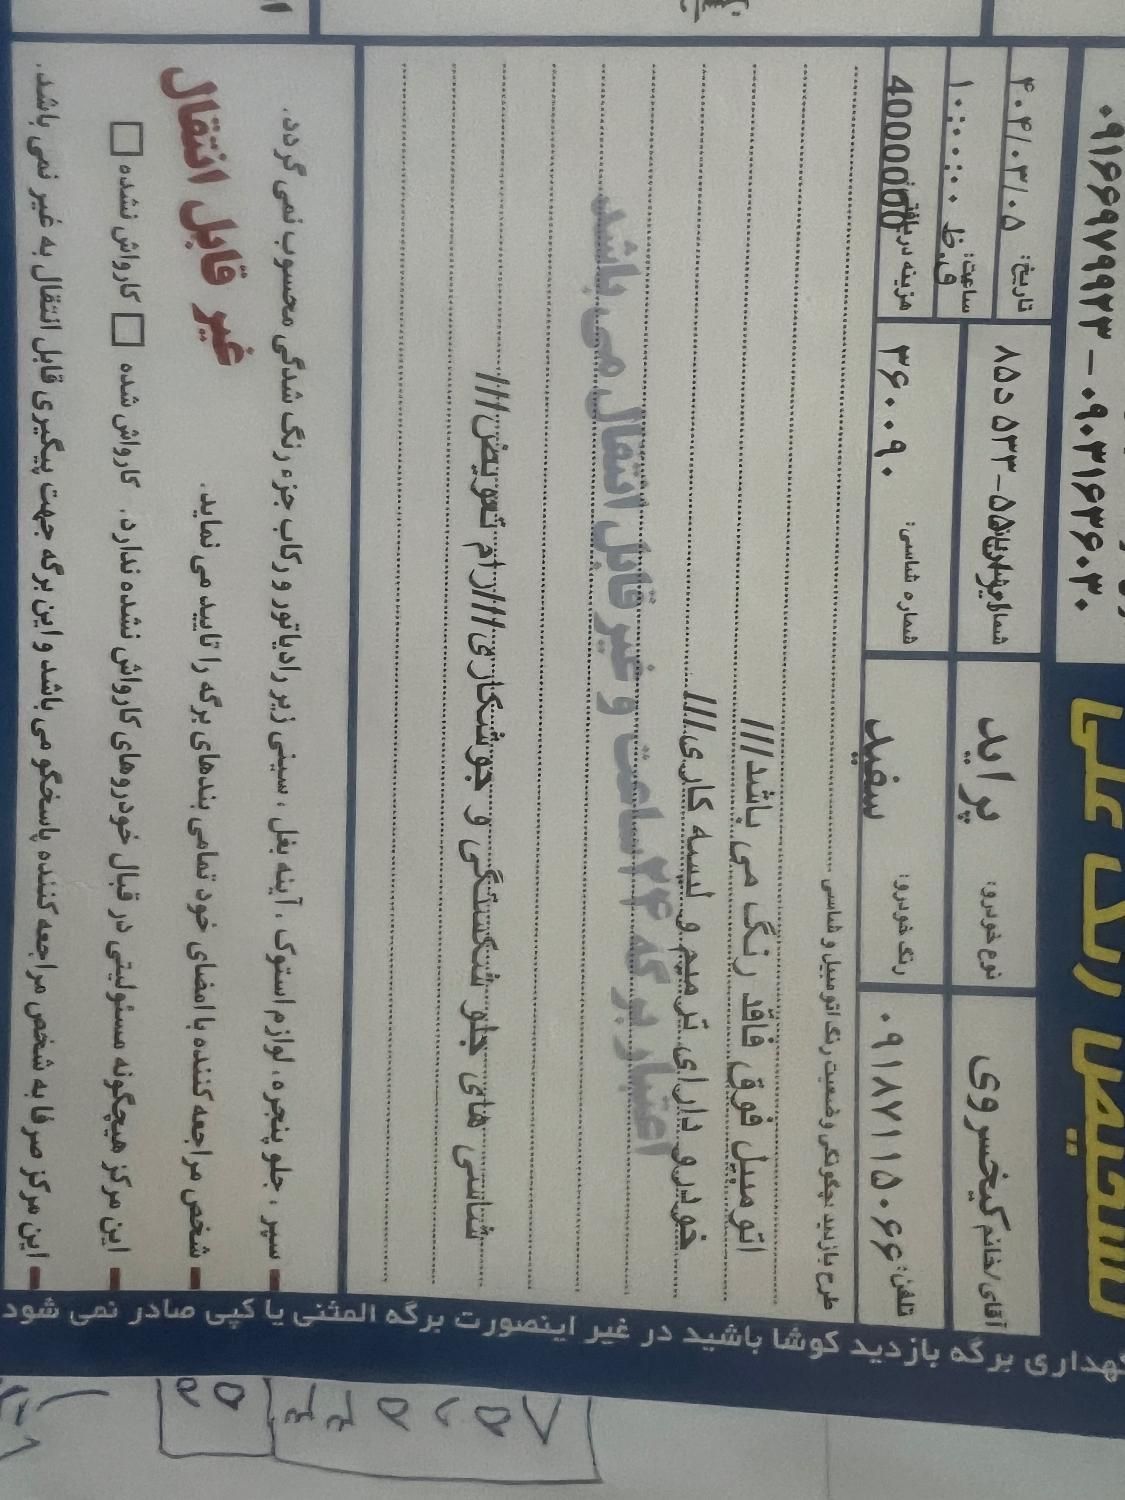 تشخیص رنگ علی
۰۹۱۶۶۹۷۹۹۲۳ - ۰۹۰۳۱۶۳۶۰۳۰
آقای/خانم: کیخسروی
نوع خودرو: پراید
شماره شهربانی: ۸۵د۵۳۳-۵۵
تاریخ: ۴۰۴/۰۳/۰۵
ساعت: ۱۰:۰۰:۰۰ ق.ظ
تلفن: ۰۹۱۸۷۱۱۵۰۶۶
رنگ خودرو: سفید
شماره شاسی: ۳۶۰۰۹۰
هزینه دریافتی: 4000000
طرح بازدید چگونگی وضعیت رنگ اتومبیل و شاسی
اتومبیل فوق فاقد رنگ می باشد///
خودرو دارای ترمیم و لیسه کاری///
اعتبار برگه ۲۴ ساعت و غیر قابل انتقال می باشد
شاسی های جلو شکستگی و جوشکاری///رام تعویض///
سپر ، جلو پنجره ، لوازم استوک ، آینه بغل ، سینی زیر رادیاتور و رکاب جزء رنگ شدگی محسوب نمی گردد.
شخص مراجعه کننده با امضای خود تمامی بندهای برگه را تایید می نماید.
غیر قابل انتقال
این مرکز هیچگونه مسئولیتی در قبال خودروهای کارواش نشده ندارد. کارواش شده □ کارواش نشده □
این مرکز صرفا به شخص مراجعه کننده پاسخگو می باشد و این برگه جهت پیگیری قابل انتقال به غیر نمی باشد.
نگهداری برگه بازدید کوشا باشید در غیر اینصورت برگه المثنی یا کپی صادر نمی شود
۸۵د۵۳۳ ۵۵